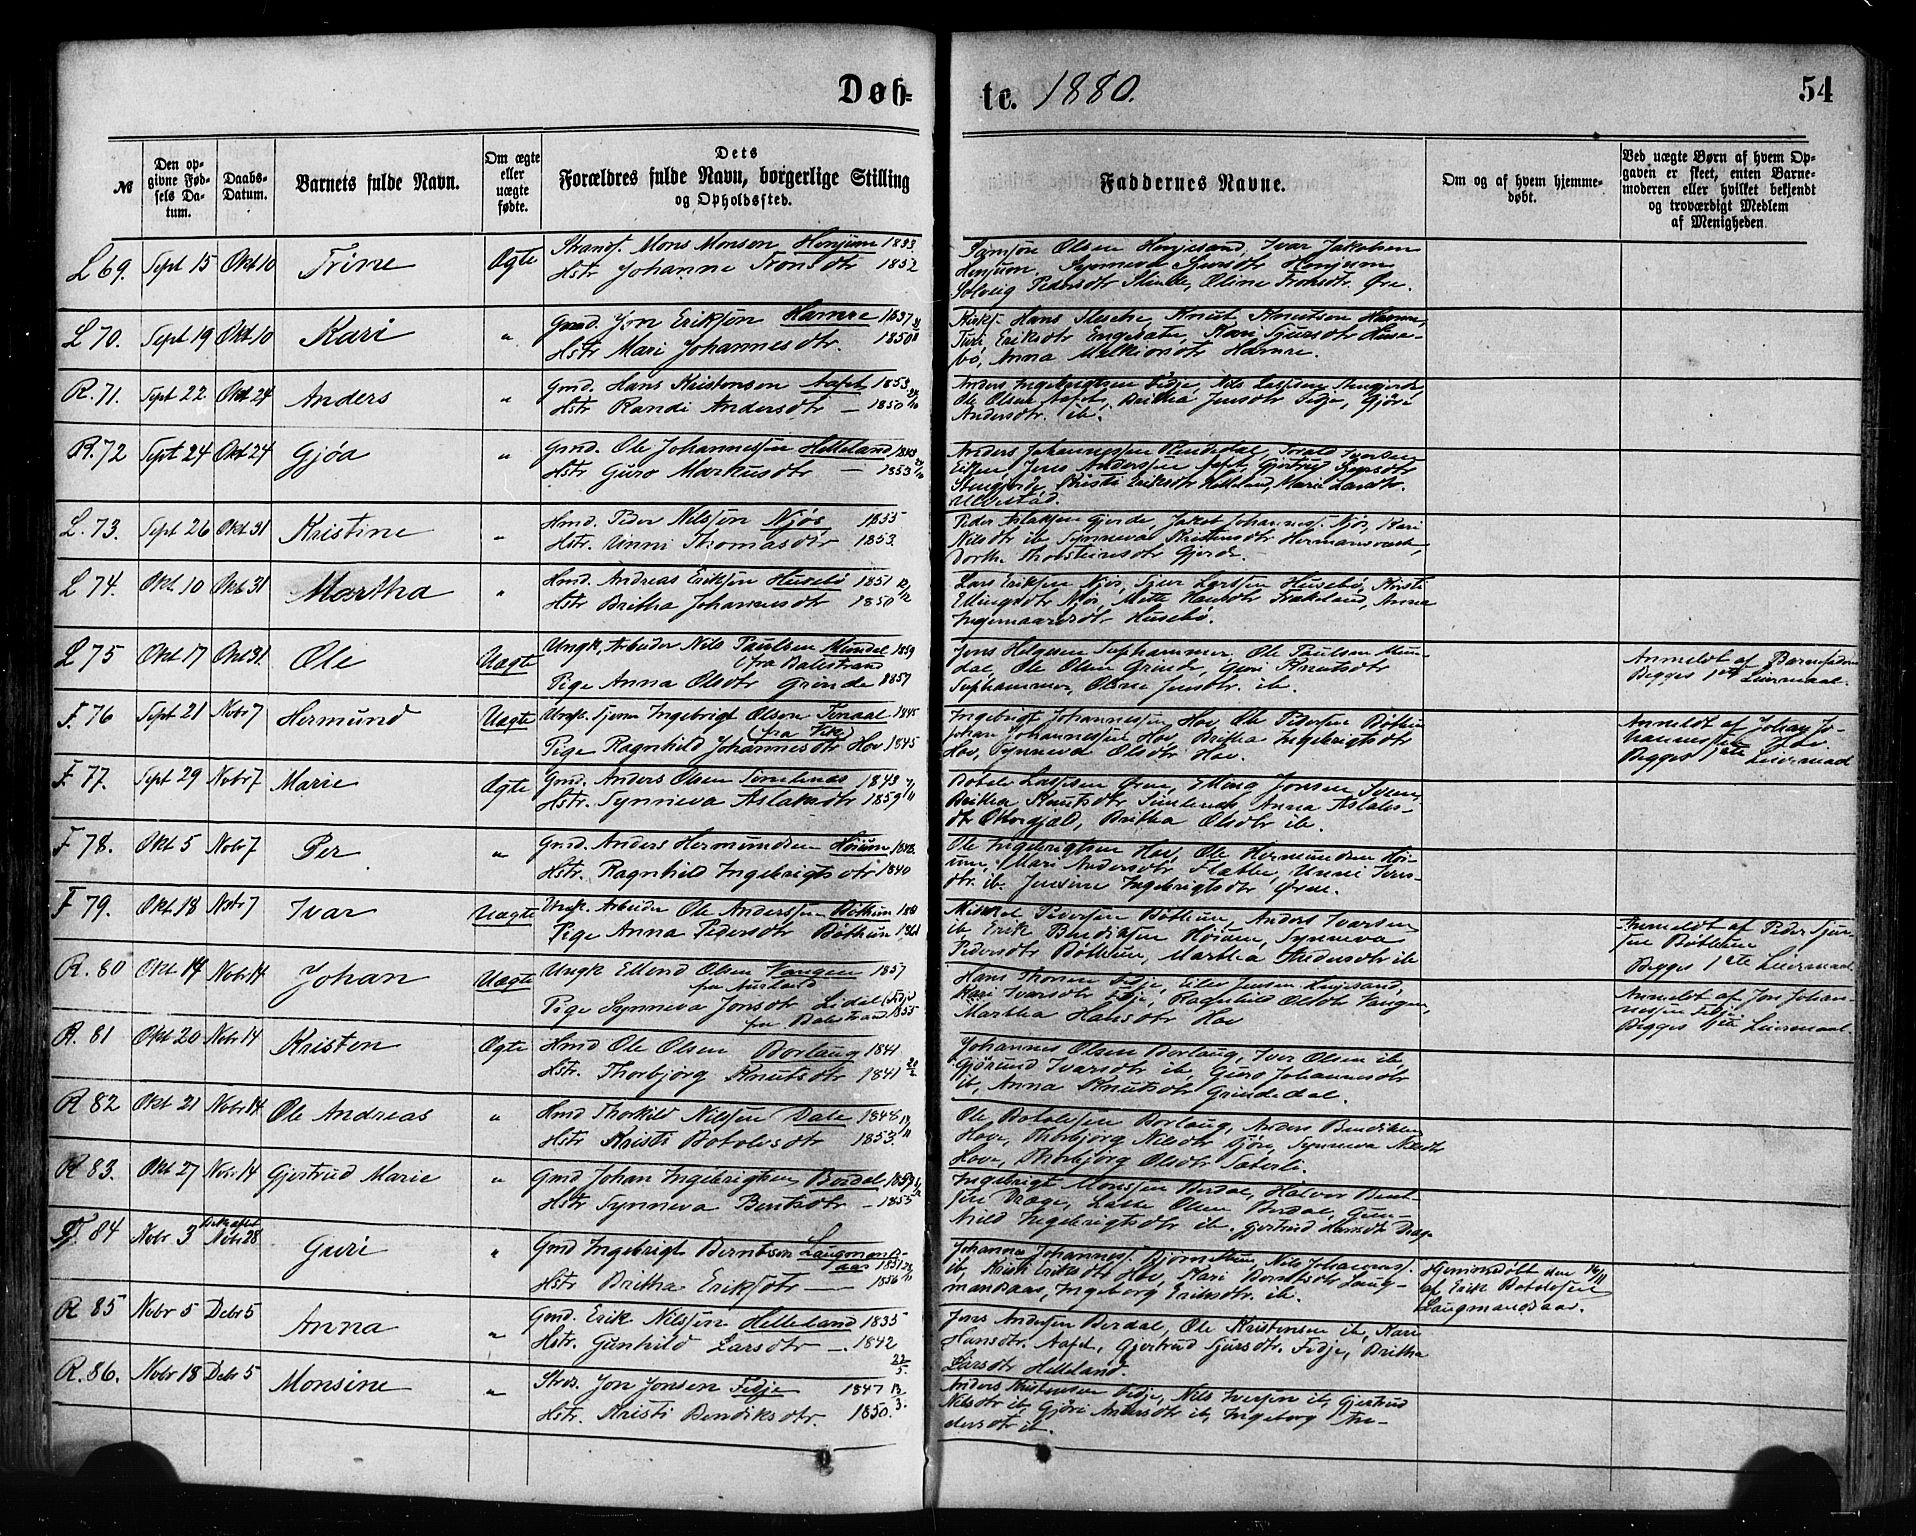 Døb-
te. 1880.
54
№
Den opgivne Fødsels Datum.
Daabs-Datum.
Barnets fulde Navn.
Om ægte eller uægte fødte.
Dets
Forældres fulde Navn, borgerlige Stilling
og Opholdssted.
Faddernes Navne.
Om og af hvem hjemmedøbt.
Ved uægte Børn af hvem Opgaven er skeet, enten Barnemoderen eller hvilket bekjendt og troværdigt Medlem af Menigheden.
L 69. Sept 15 Okt 10 Trine Ægte Strands. Mons Monsen Henjum 1833
Hstr Johanne Tronsdtr 1852
Samson Olsen Henjesand, Ivar Jakobsen
Henjum, Synneva Sjursdtr Henjum
Solveig Pedersdtr Slinde, Oline Tronsdtr. Øre.
L 70. Sept 19 Okt 10 Kari " Gmd. Jon Eriksen Hamre 1837
Hstr Mari Johannesdtr. 1850
Hans Knut Knutsen Hamre,
Turi Eriksdtr Engesæter, Kari Sjursdtr Huse-
bø, Anna Melkiorsdtr Hamre.
R. 71. Sept 22 Okt 24 Anders " Gmd. Hans Kristensen Aafet 1853
Hstr Randi Andersdtr — 1850
Anders Ingebrigtsen Fedje, Nils Larssen Stengjerde,
Ole Olsen Aafet, Britha Jensdtr Fedje, Gjøri
Andersdtr. ib.
R. 72 Sept 24 Okt 24 Gjøa " Gmd. Ole Johannessen Helleland
Hstr Guro Markusdtr — 1853
Anders Johannessen Rendedal,
Eiken, Jens Anderssen Aafet, Gjertrud
Stengjerde, Kristi Eriksdtr Helleland, Mari Larsdtr.
Ulvestad.
L. 73. Sept 26 Okt 31 Kristine " Hmd. Peder Nilssen Njøs 1855
Hstr. Unni Thomasdtr 1853.
Peder Aslaksen Gjerde, Jakob Johanness. Njøs, Kari
Nilsdtr ib Synneva Kristensdtr Hermansverk,
Dorth. Thorsteinsdtr Gjerde.
L 74. Okt 10 Okt 31 Martha " Hmd. Andreas Eriksen Husebø 1851
Hstr Britha Johannesdtr 1850
Lars Eriksen Njøs, Sjur Larssen Husebø, Kirsti
Ellingsdtr Njøs, Mette Hansdtr Frækeland, Anna
Ingemarsdtr Husebø.
L 75 Okt 17 Okt 31. Ole Uægte Ungk, Arbeider Nils Paulsen Mundal 1859
(fra Balestrand
Pige Anna Olsdtr Grinde 1857
Jens Helgesen Sophammer, Ole Paulsen Mun-
dal, Ole Olsen Grinde, Guri Knutsdtr
Sophammer, Oline Jensdtr. ib.
Anmeldt af Barnefaderen
Begges 1ste Leiermaal.
F. 76 Sept 21 Nobr 7 Hermund Uægte Ungk. Tjener Ingebrigt Olsen 1845
Pige Ragnhild Johannesdtr Hov 1845
Ingebrigt Johannessen Hov, Ole Pedersen Bøthun
Johan Johannessen Hov, Britha Ingebrigtsdtr
Hov, Synneva Olsdtr Hov.
Anmeldt af Johan Jo-
hannessen Hov
Begges 1ste Leiermaal
F 77. Sept 29 Nobr 7 Marie Ægte Gmd. Anders Olsen 1843
Hstr. Synneva Aslaksdtr 1859
Botolv Larssen Øren, Elling Jonsen
Britha Knutsdtr Anna Aslaks-
dtr Britha Olsdtr ib.
F 78. Okt 5 Nobr 7 Per " Gmd. Anders Hermundsen Høium
Hstr. Ragnhild Ingebrigtsdtr 1840
Ole Ingebrigtsen Hov, Ole Hermundsen Høi-
um, Mari Andersdtr Flætte, Unni Ivers-
dtr. ib. Jensine Ingebrigtsdtr Øren.
F 79. Okt 18 Nobr 7 Ivar Uægte Ungk. Arbeider Ole Anderssen Bøthun
Pige Anna Pedersdtr Bøthun
Mikkel Pedersen Bøthun, Anders Ivarsen
ib Erik Bendiksen Høium, Synneva
Pedersdtr Bøthun, Martha Andersdtr ib
Anmeldt af Peder Sjur-
sen Bøthun
Begges 1ste Leiermaal
R. 80 Okt 14 Nobr 14 Johan Uægte Ungk Ellend Olsen Vangen 1857
fra Aurland
Pige Synneva Jonsdtr Lidal (Fedje
fra Balestrand 1855
Hans Thorsen Fedje, Eilev Jensen Henjesand,
Kari Ivarsdtr Fedje, Ragnhild Olsdtr Vangen,
Martha Hansdtr Hov
Anmeldt af Jon Johan-
nessen Fedje
Begges 1ste Leiermaal
R. 81 Okt 20 Nobr 14 Kristen Ægte Hmd Ole Olsen Borlaug 1841
Hstr. Thorbjørg Knutsdtr 1841
Johannes Olsen Borlaug, Iver Olsen ib
Gjørund Ivarsdtr ib, Guro Johannesdtr
ib, Anna Knutsdtr Grindedal.
R 82 Okt 21 Nobr 14 Ole Andreas " Hmd Thorkild Nilssen Dale 1848
Hstr Kristi Botolvsdtr 1853.
Ole Botolvsen Borlaug, Anders Bendiksen
Hove, Thorbjørg Nilsdtr Gjøre, Synneva Nilsdtr
Hove, Thorbjørg Olsdtr Sæterli.
R 83. Okt 27 Nobr 14 Gjertrud Marie " Gmd Johan Ingebrigtsen Berdal 1853
Hstr Synneva Bentsdtr — 1855
Ingebrigt Monssen Berdal, Halvor Bent-
sen Dræge, Lasse Olsen Berdal, Gun-
nild Ingebrigtsdtr ib. Gjertrud Hansdtr Dræge
F 84 Nobr 3 Nobr 28 Guri " Gmd Ingebrigt Berntsen Laugmands-
aas 1851
Hstr Britha Eriksdtr — 1856
Johannes Johanness. Bjørnetun, Nils Johanness.
ib, Kristi Eriksdtr Hov, Kari Berntsdtr Laug-
mandsaas, Ingeborg Eriksdtr. ib.
Hjemmedøbt den 14/11
af Erik Botolvsen
Laugmandsaas.
R 85 Nobr 5 Debr 5 Anna " Gmd. Erik Nilssen Helleland 1835
Hstr. Gunhild Larsdtr —. 1842
Jens Andersen Berdal, Ole Kristensen ib, Kari
Hansdtr. Aafet, Gjertrud Sjursdtr. Fedje, Britha
Larsdtr Helleland.
R. 86. Nobr 18 Debr 5 Monsine " Strds. Jon Jonsen Fedje 1847 22/5
Hstr. Kristi Bendiksdtr. 1850. 13/3.
Anders Kristensen Fedje, Nils Iversen ib, Gjertrud
Nilsdtr ib, Gjøri Andersdtr ib, Ingeborg An-
dersdtr ib.